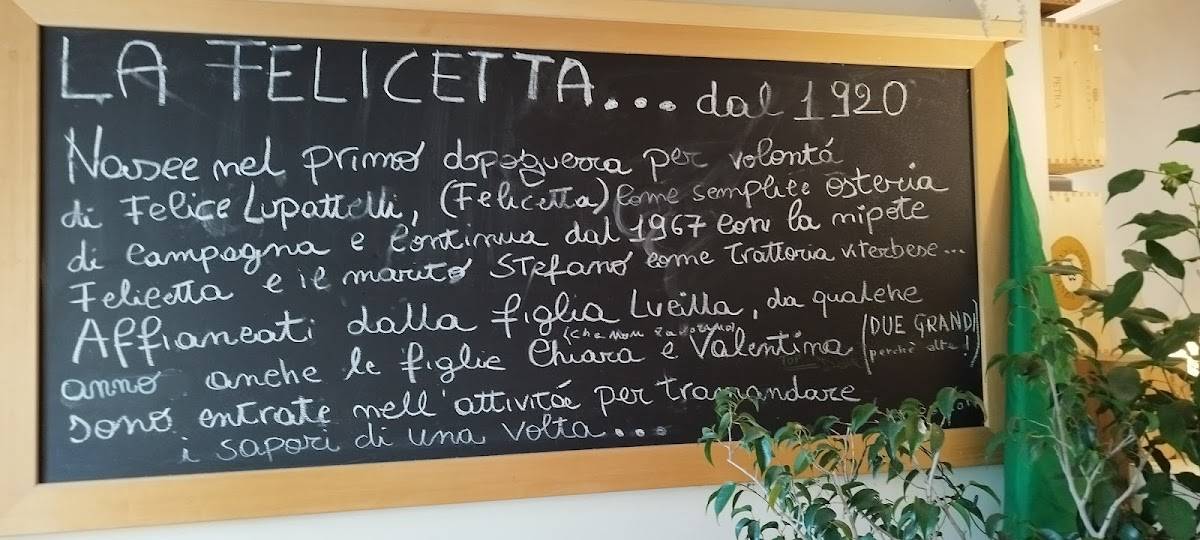 LA FELICETTA... dal 1920
Nasce nel primo dopoguerra per volontá
di Felice Lupattelli, (Felicetta) come semplice osteria
di campagna e continua dal 1967 con la nipote
Felicetta e il marito Stefano come trattoria viterbese...
Affiancati dalla figlia Lucilla, da qualche
anno anche le figlie Chiara e Valentina
(che non
(DUE GRANDI
perchè alte!)
sono entrate nell'attivitá per tramandare
i sapori di una volta...
PETRA